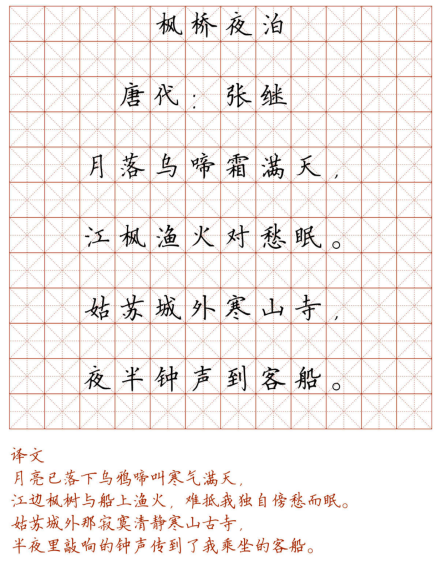 枫桥夜泊
唐代：张继
月落乌啼霜满天，
江枫渔火对愁眠。
姑苏城外寒山寺，
夜半钟声到客船。
译文
月亮已落下乌鸦啼叫寒气满天，
江边枫树与船上渔火，难抵我独自傍愁而眠。
姑苏城外那寂寞清静寒山古寺，
半夜里敲响的钟声传到了我乘坐的客船。